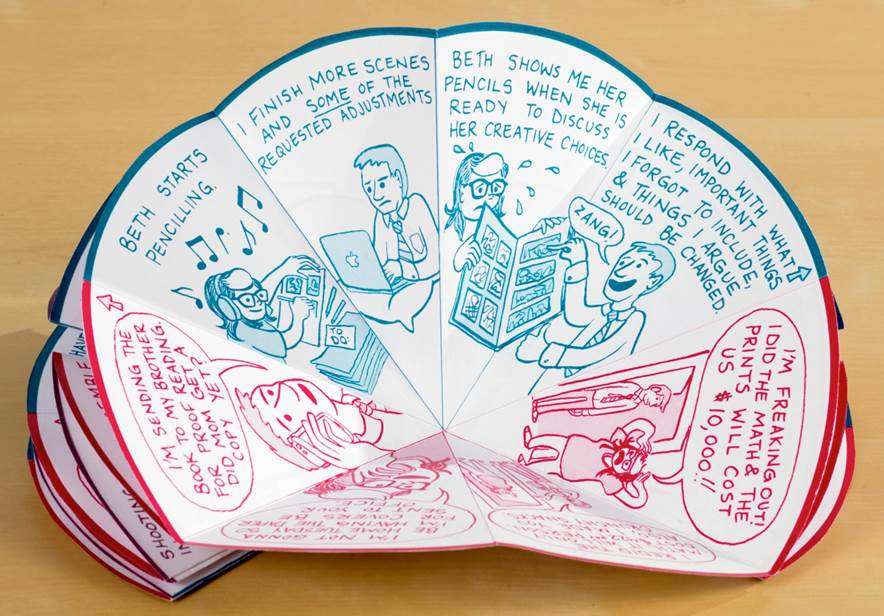 BETH STARTS
PENCILLING.
I FINISH MORE SCENES
AND SOME OF THE
REQUESTED ADJUSTMENTS
BETH SHOWS ME HER
PENCILS WHEN SHE IS
READY TO DISCUSS
HER CREATIVE CHOICES
I RESPOND WITH WHAT
I LIKE, IMPORTANT THINGS
I FORGOT TO INCLUDE,
& THINGS I ARGUE
SHOULD BE CHANGED.
ZANG!
I'M SENDING THE
BOOK PROOF
TO MY BROTHER
FOR A READING.
DID MOM GET
COPY YET?
I'M FREAKING OUT!
I DID THE MATH & THE
PRINTS WILL COST
US $10,000!!
I'M NOT GONNA
BE HAVING THE PAPER
TUESDAY
FOR
TO YOUR
SHOOTING